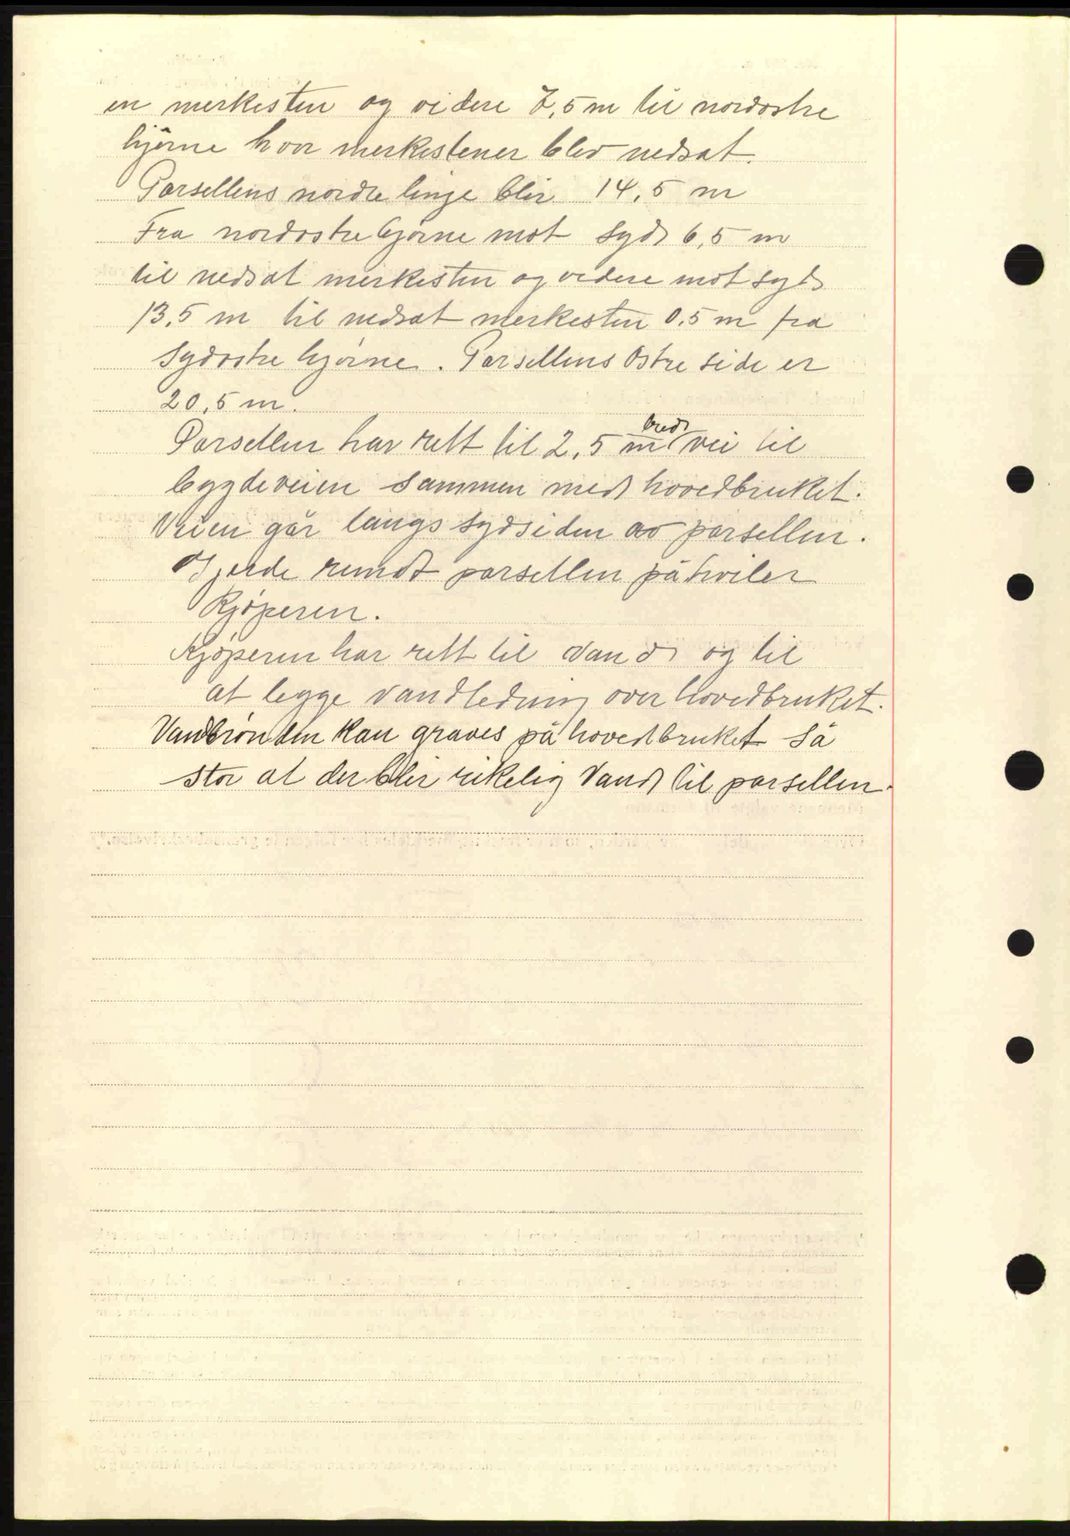 en merkesten og videre 7,5 m til nordostre
hjörne hvor merkestener blev nedsat.
Parsellens nordre linje blir 14,5 m
Fra nordostre hjørne mot Syd 6,5 m
til nedsat merkesten og videre mot syd
13,5 m til nedsat merkesten 0,5 m fra
Sydostre hjørne. Parsellens Ostre side er
20,5 m.
Parsellen har rett til 2,5 m bred vei til
bygdeveien sammen med hovedbruket.
Veien går langs sydsiden av parsellen.
Gjerde rundt parsellen påhviler
Kjøperen.
Kjøperen har rett til Vand og til
at legge vandledning over hovedbruket.
Vandbrønden kan graves på hovedbruket så
stor at der blir rikelig Vand til parsellen.